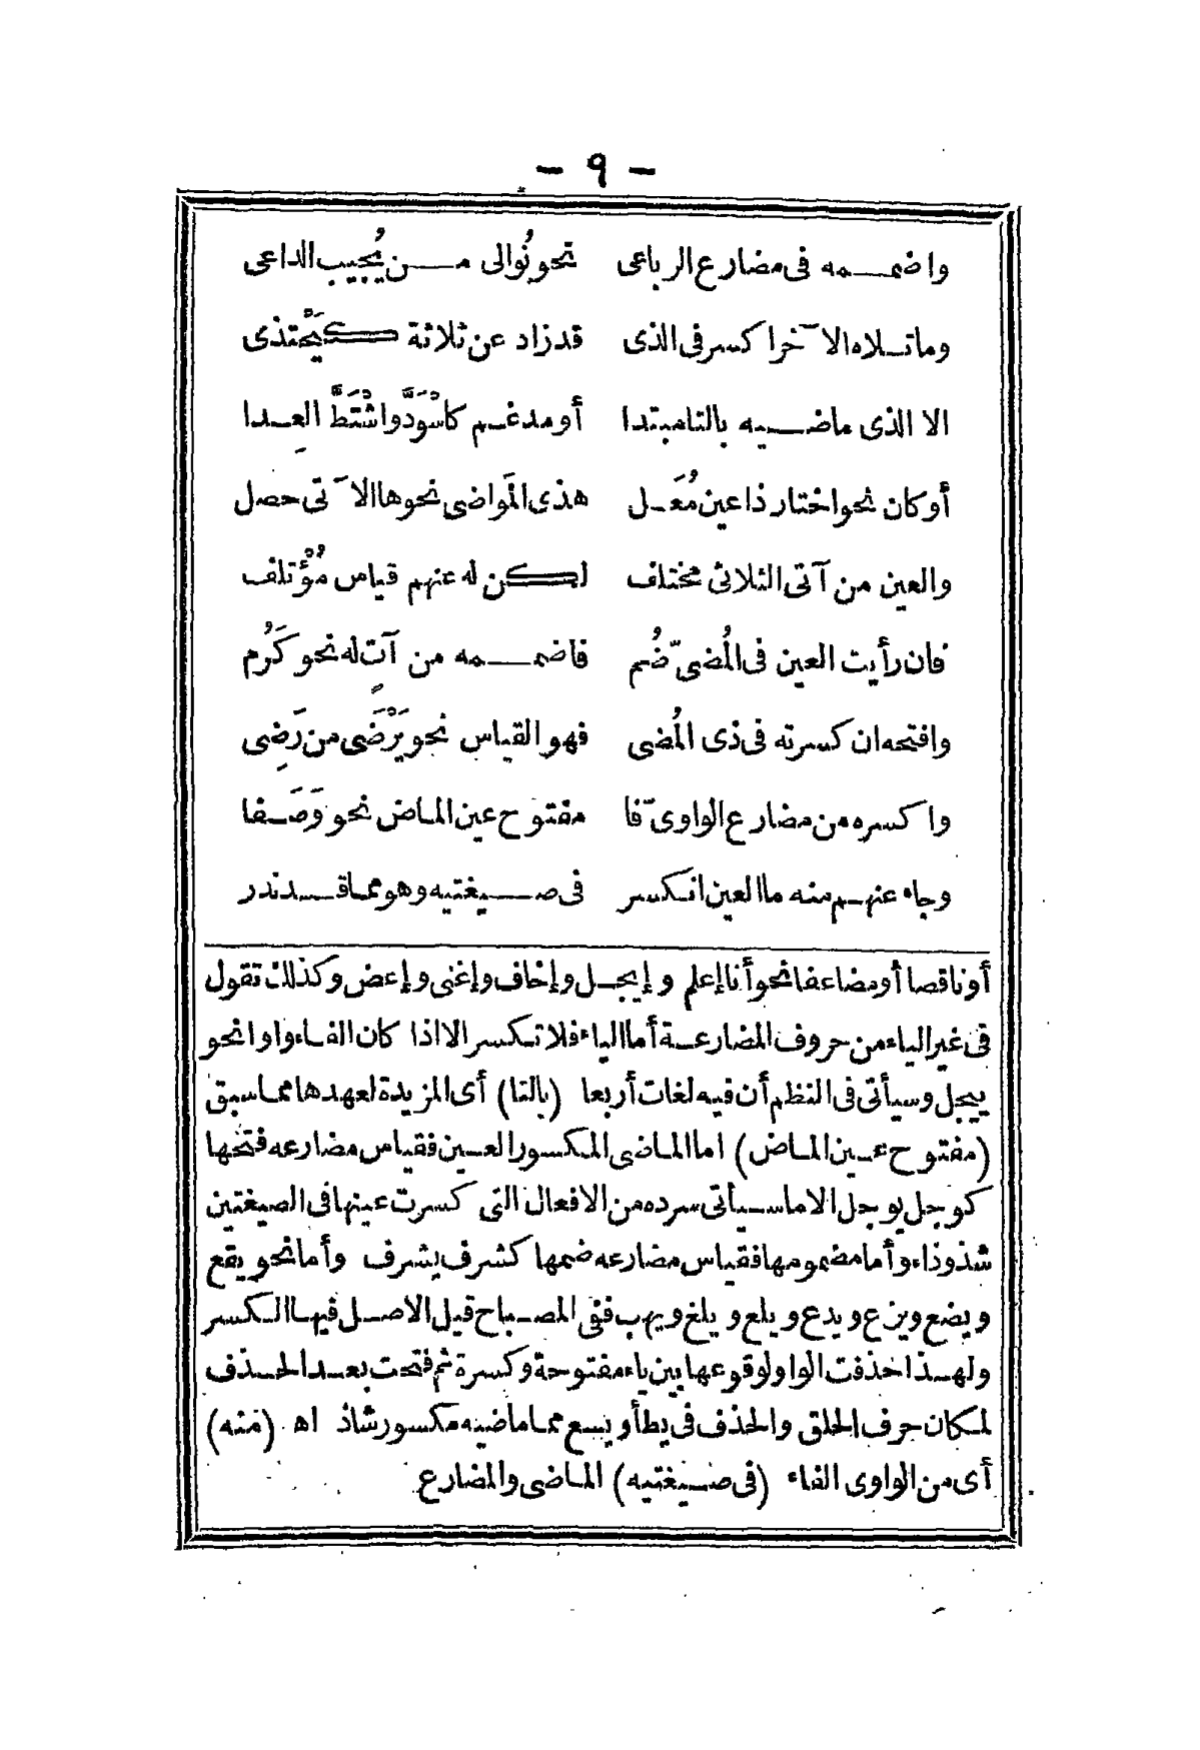 - ٩ -
واضممه فى مضارع الرباعى نحو نُوالى من يُجيب الداعى
وما تلاه الآخرا كسر فى الذى قد زاد عن ثلاثة كيَحْتذى
الا الذى ماضيه بالتا مبتدا أو مدغم كاسْوَدَّ واشْتَطَّ العِدا
أو كان نحو اختار ذا عين مُعَل هذى المَواضى نحوها الآتى حصل
والعين من آتى الثلاثى مختلف لكن له عنهم قياس مُؤْتلف
فان رأيت العين فى المُضىّ ضُم فاضممه من آتٍ له نحو كَرُم
وافتحه ان كسرته فى ذى المُضى فهو القياس نحو يَرْضَى من رَضِى
واكسره من مضارع الواوىّ فا مفتوح عين الماض نحو وَصَفا
وجاء عنهم منه ما العين انكسر فى صيغتيه وهو مما قد ندر
أو ناقصا أو مضاعفا نحو أنا إعلم وإيجل وإخاف وإغنى وإعض وكذلك تقول
فى غير الياء من حروف المضارعة أما الياء فلا تكسر الا اذا كان الفاء واوا نحو
ييجل وسيأتى فى النظم أن فيه لغات أربعا (بالتا) أى المزيدة لعهدها مما سبق
(مفتوح عين الماض) اما الماضى المكسور العين فقياس مضارعه فتحها
كوجل يوجل الا ما سيأتى سرده من الافعال التى كسرت عينها فى الصيغتين
شذوذاء وأما مضمومها فقياس مضارعه ضمها كشرف يشرف وأما نحو يقع
ويضع ويزع ويدع ويلع ويلغ ويهب ففى المصباح قيل الاصل فيها الكسر
ولهذا حذفت الواو لوقوعها بين ياء مفتوحة وكسرة ثم فتحت بعد الحذف
لمكان حرف الحلق والحذف فى يطأ ويسع مما ماضيه مكسور شاذ اه (منه)
أى من الواوى الفاء (فى صيغتيه) الماضى والمضارع